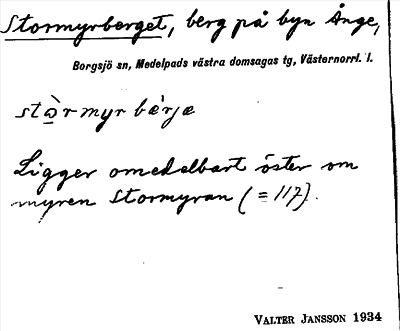 Stormyrberget, berg på byn Ånge,
Borgsjö sn, Medelpads västra domsagas tg, Västernorrl. l.
stò̱rmyrbæ̀rjæ
Ligger omedelbart öster om
myren Stormyran (= 117).
VALTER JANSSON 1934